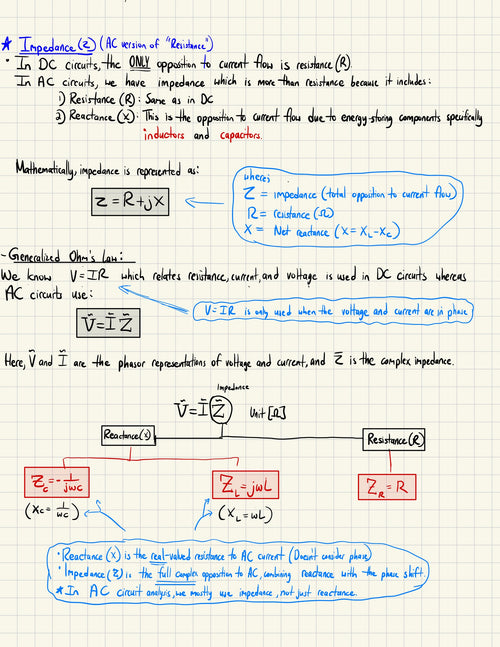 ★ Impedance (Z) (AC version of "Resistance")
• In DC circuits, the ONLY opposition to current flow is resistance (R).
In AC circuits, we have impedance which is more than resistance because it includes:
1) Resistance (R): Same as in DC
2) Reactance (X): This is the opposition to current flow due to energy-storing components specifically
inductors and capacitors.
Mathematically, impedance is represented as:
Z = R + jX
where:
Z = impedance (total opposition to current flow)
R = resistance (Ω)
X = Net reactance (X = X_L - X_C)
- Generalized Ohm's Law:
We know V=IR which relates resistance, current, and voltage is used in DC circuits whereas
AC circuits use:
V=IR is only used when the voltage and current are in phase
Ṽ = Ĩ Z̃
Here, Ṽ and Ĩ are the phasor representations of voltage and current, and Z̃ is the complex impedance.
Impedance
Ṽ = Ĩ Z̃ Unit [Ω]
Reactance(s)
Resistance (R)
Z_C = -1/jωC
Z_L = jωL
Z_R = R
(X_C = 1/ωC)
(X_L = ωL)
• Reactance (X) is the real-valued resistance to AC current (Doesn't consider phase)
• Impedance (Z) is the full complex opposition to AC, combining reactance with the phase shift.
* In AC circuit analysis, we mostly use impedance, not just reactance.